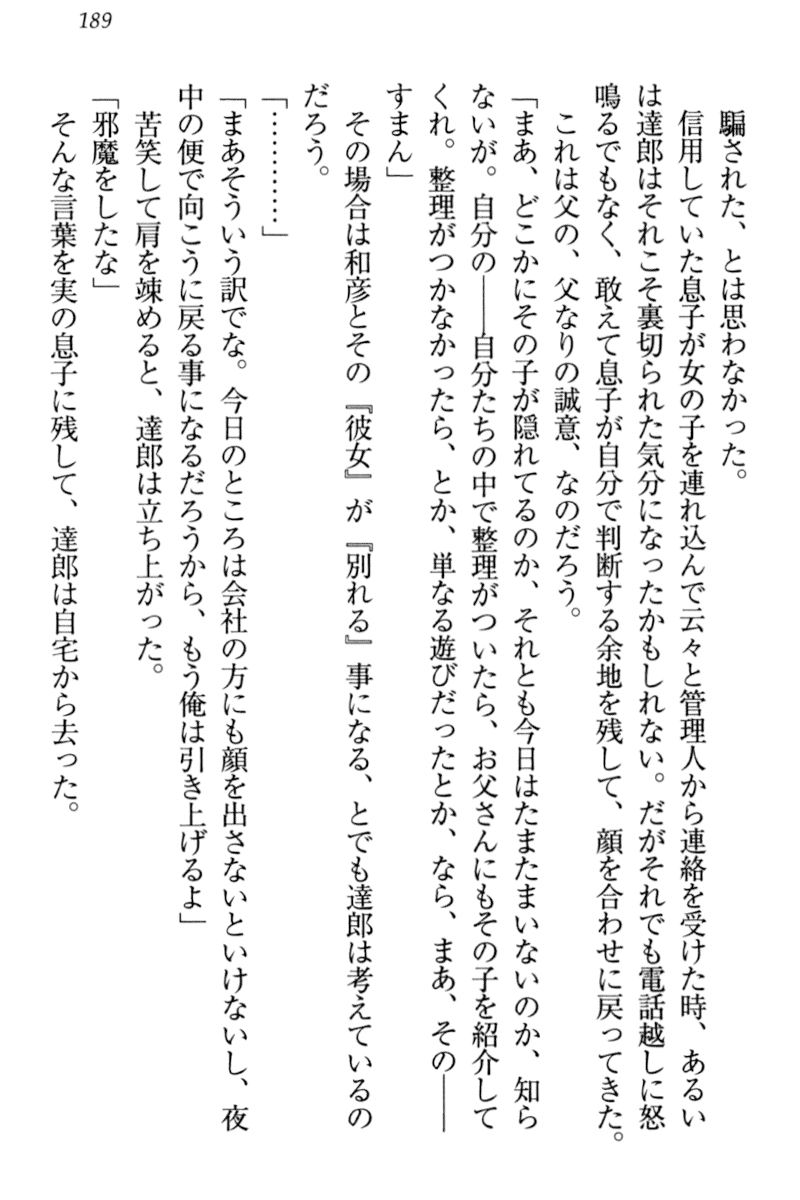 189
騙された、とは思わなかった。
信用していた息子が女の子を連れ込んで云々と管理人から連絡を受けた時、あるい
は達郎はそれこそ裏切られた気分になったかもしれない。だがそれでも電話越しに怒
鳴るでもなく、敢えて息子が自分で判断する余地を残して、顔を合わせに戻ってきた。
これは父の、父なりの誠意、なのだろう。
「まあ、どこかにその子が隠れてるのか、それとも今日はたまたまいないのか、知ら
ないが。自分の――自分たちの中で整理がついたら、お父さんにもその子を紹介して
くれ。整理がつかなかったら、とか、単なる遊びだったとか、なら、まあ、その――
すまん」
その場合は和彦とその『彼女』が『別れる』事になる、とでも達郎は考えているの
だろう。
「…………」
「まあそういう訳でな。今日のところは会社の方にも顔を出さないといけないし、夜
中の便で向こうに戻る事になるだろうから、もう俺は引き上げるよ」
苦笑して肩を竦めると、達郎は立ち上がった。
「邪魔をしたな」
そんな言葉を実の息子に残して、達郎は自宅から去った。